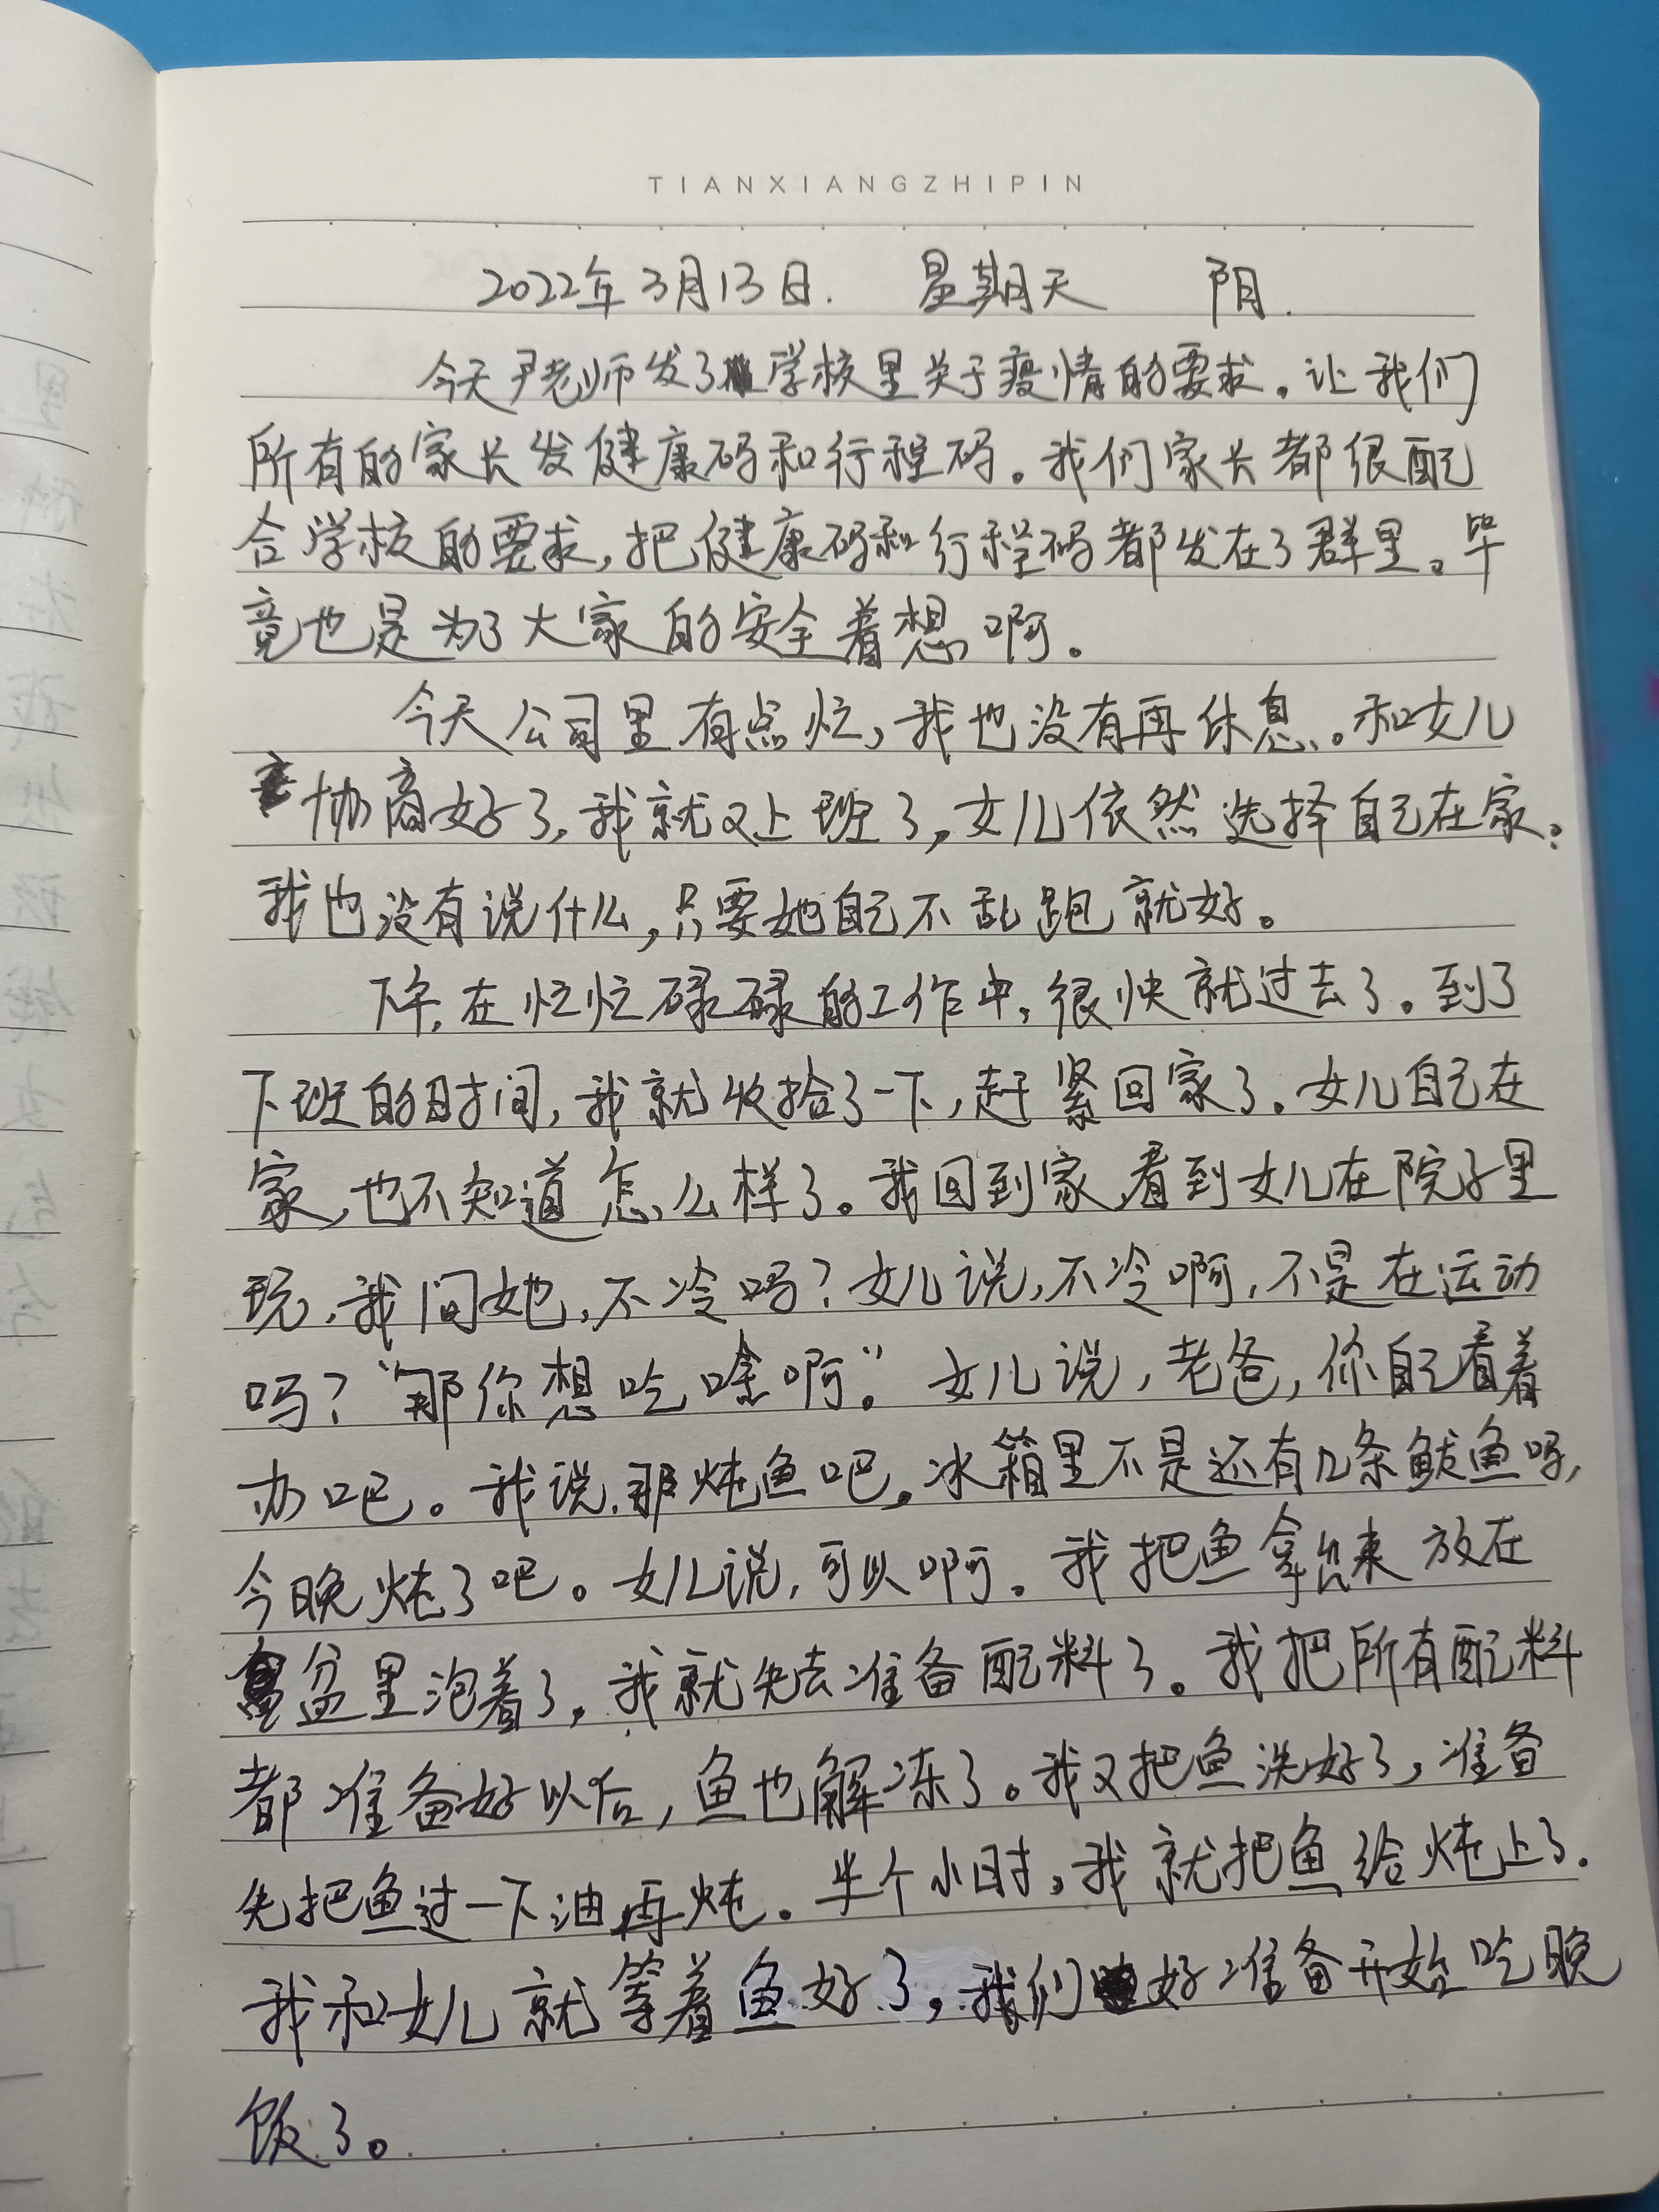 TIANXIANGZHIPIN
2022年3月13日. 星期天 阴.
今天尹老师发了学校里关于疫情的要求。让我们
所有的家长发健康码和行程码。我们家长都很配
合学校的要求,把健康码和行程码都发在了群里。毕
竟也是为了大家的安全着想啊。
今天公司里有点忙,我也没有再休息。和女儿
协商好了,我就又上班了,女儿依然选择自己在家。
我也没有说什么,只要她自己不乱跑就好。
下午,在忙忙碌碌的工作中,很快就过去了。到了
下班的时间,我就收拾了一下,赶紧回家了。女儿自己在
家,也不知道怎么样了。我回到家,看到女儿在院子里
玩,我问她,不冷吗?女儿说,不冷啊,不是在运动
吗?“那你想吃啥啊。”女儿说,老爸,你自己看着
办吧。我说,那炖鱼吧。冰箱里不是还有几条鲅鱼吗,
今晚炖了吧。女儿说,可以啊。我把鱼拿出来放在
盆里泡着了,我就先去准备配料了。我把所有配料
都准备好以后,鱼也解冻了。我又把鱼洗好了,准备
先把鱼过一下油再炖。半个小时,我就把鱼给炖上了.
我和女儿就等着鱼好了,我们好准备开始吃晚
饭了。